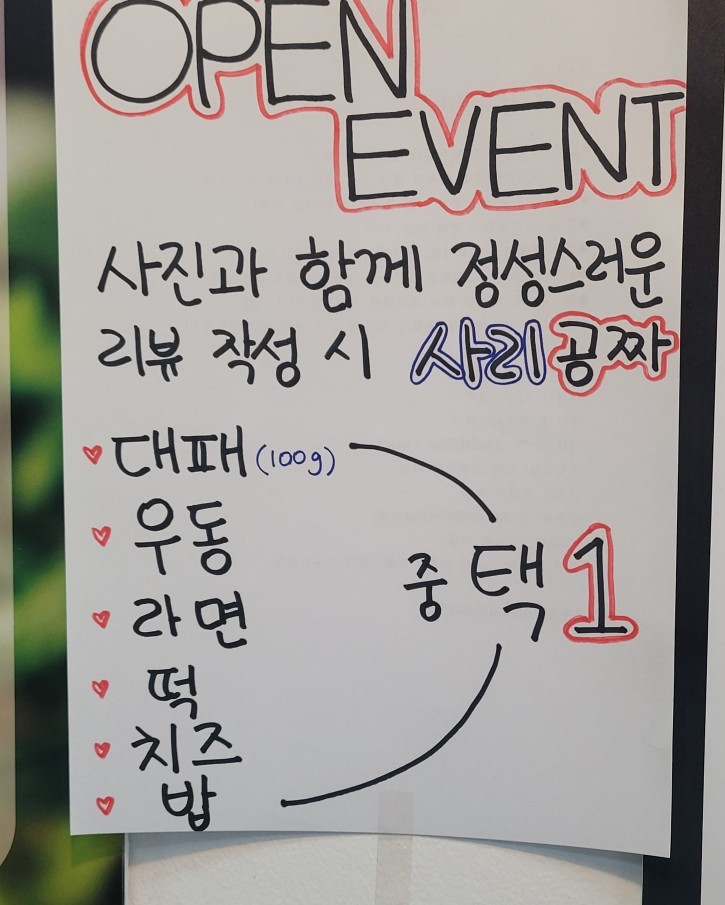 OPEN
EVENT
사진과 함께 정성스러운
리뷰 작성 시 사리공짜
♥ 대패(100g)
♥ 우동
♥ 라면
♥ 떡
♥ 치즈
♥ 밥
중 택1